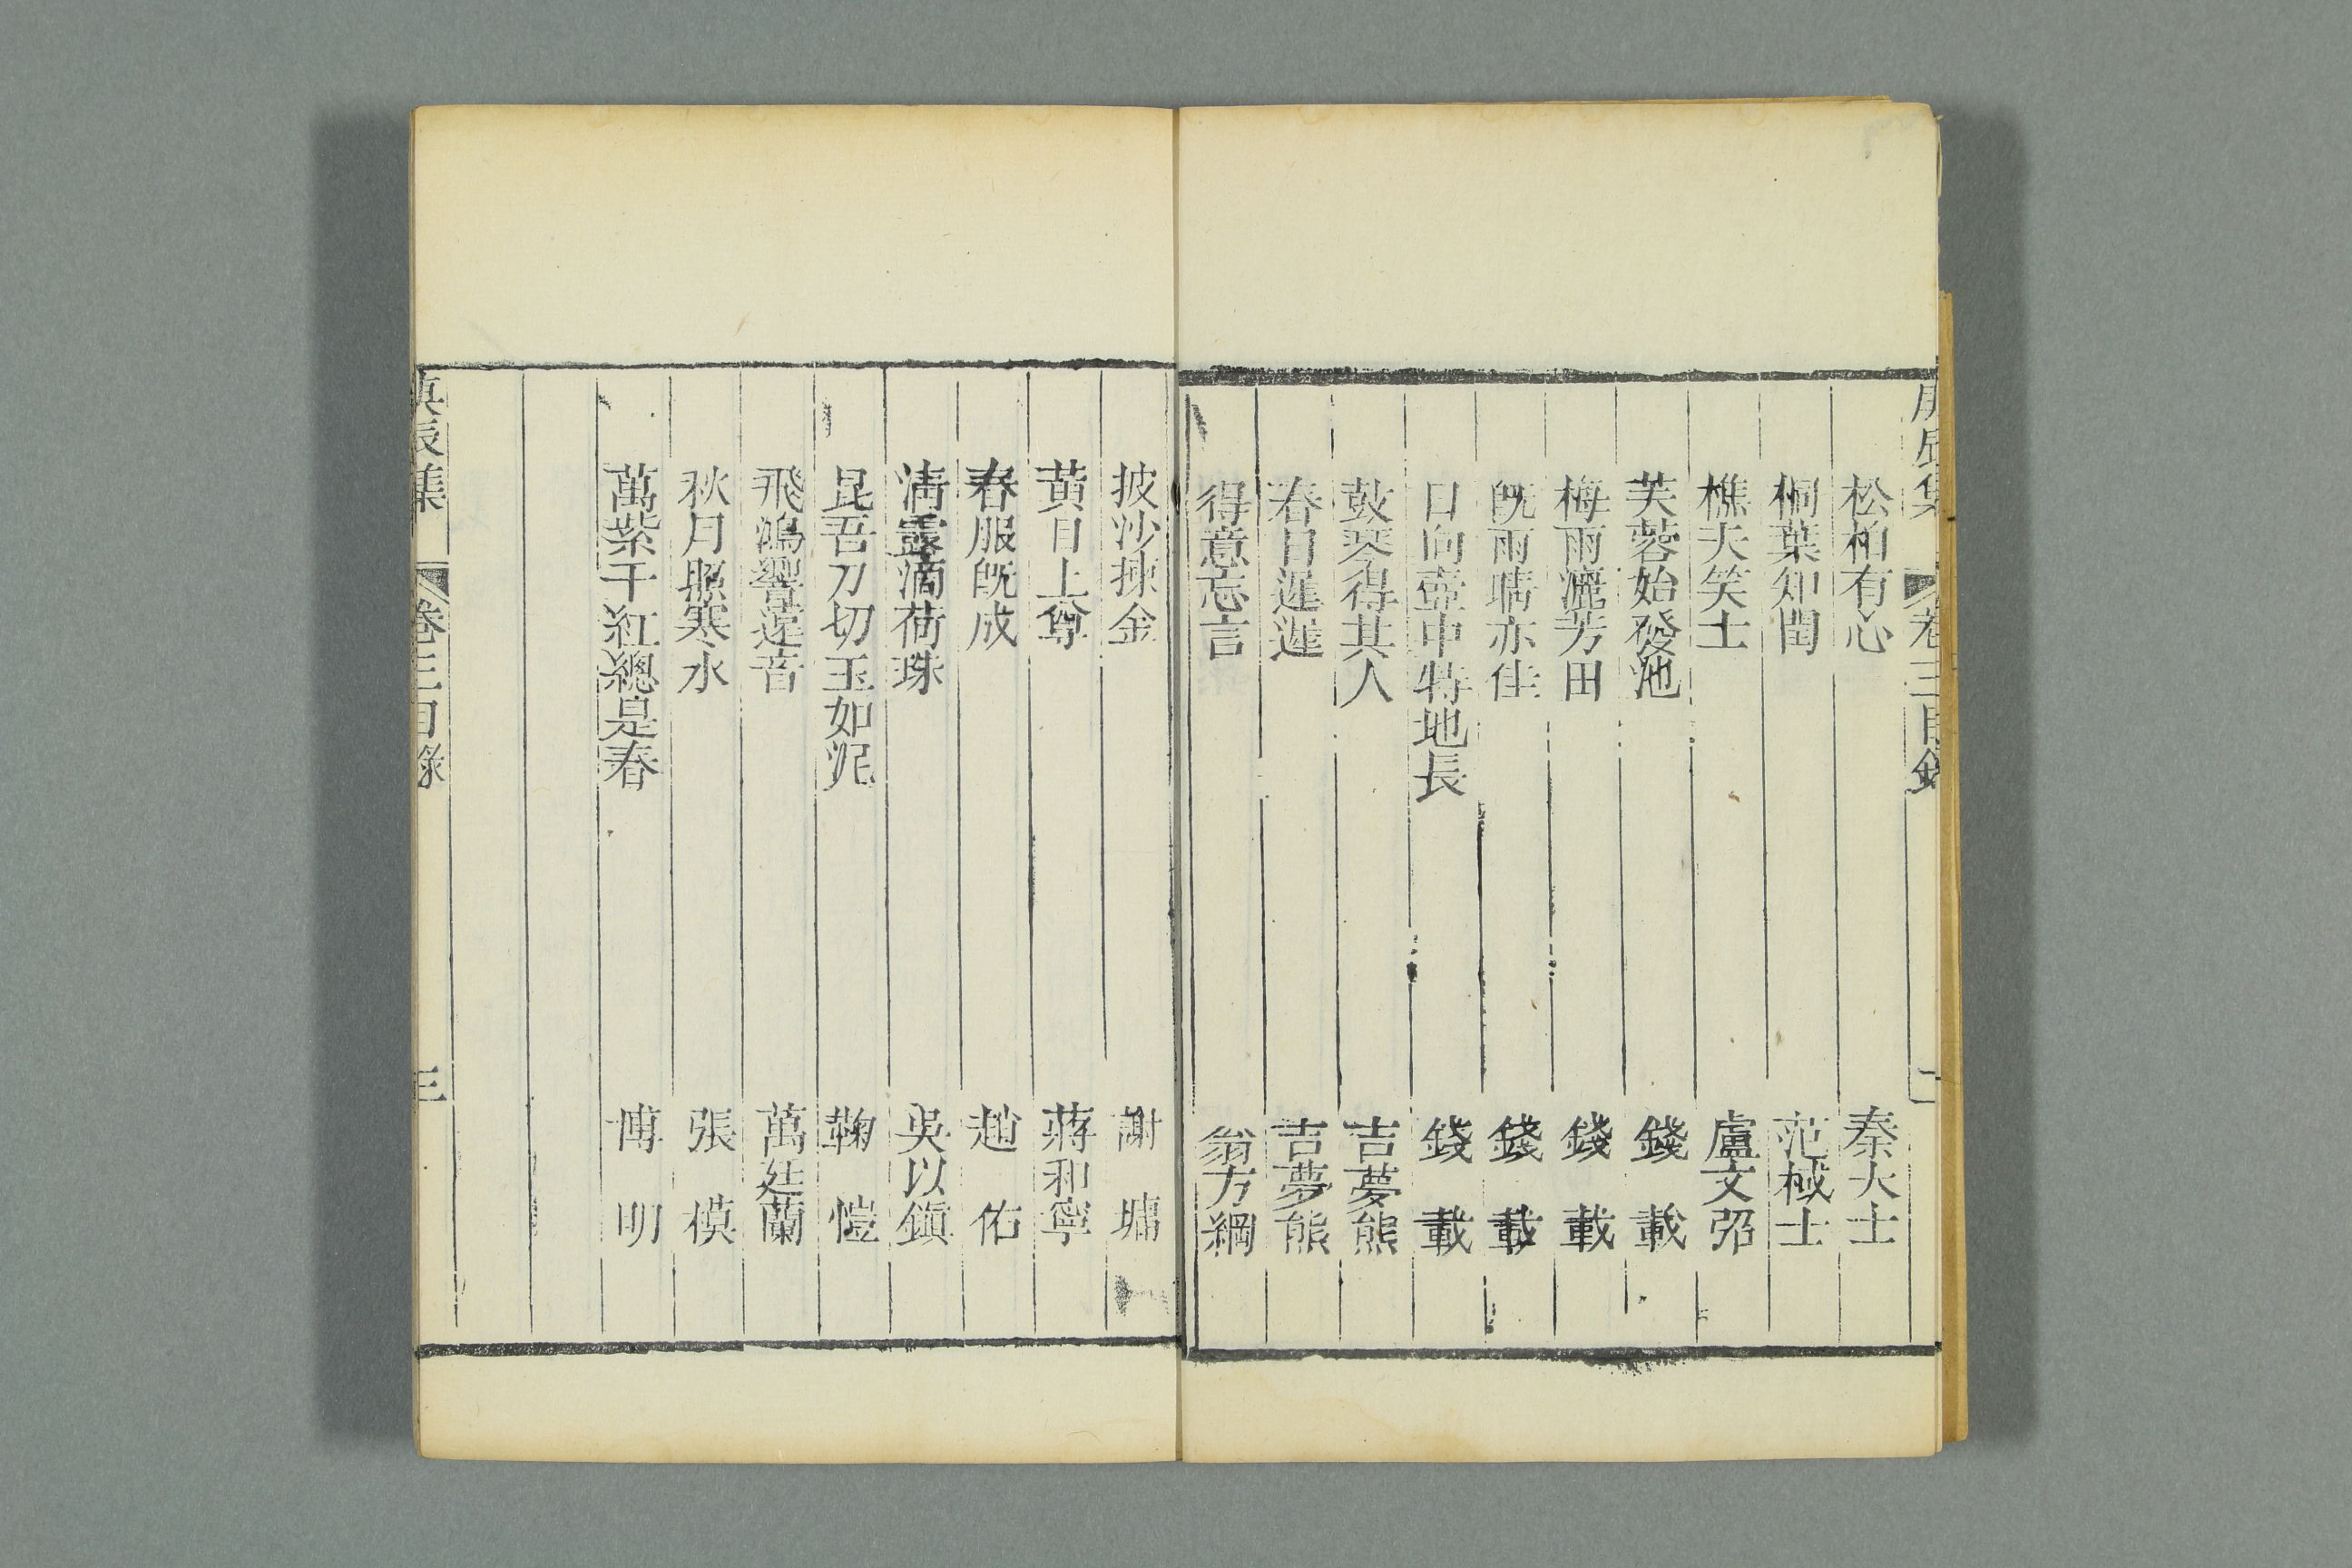 庚辰集 卷三目錄 二
松柏有心 秦大士
桐葉知閏 范棫士
樵夫笑士 盧文弨
芙蓉始發池 錢載
梅雨灑芳田 錢載
旣雨晴亦佳 錢載
日向壺中特地長 錢載
鼓琴得其人 吉夢熊
春日遲遲 吉夢熊
得意忘言 翁方綱
披沙揀金 謝墉
黃目上尊 蔣和寧
春服旣成 趙佑
淸露滴荷珠 吳以鎭
昆吾刀切玉如泥 鞠愷
飛鴻響遠音 萬廷蘭
秋月照寒水 張模
萬紫千紅總是春 博明
庚辰集 卷三目錄 三